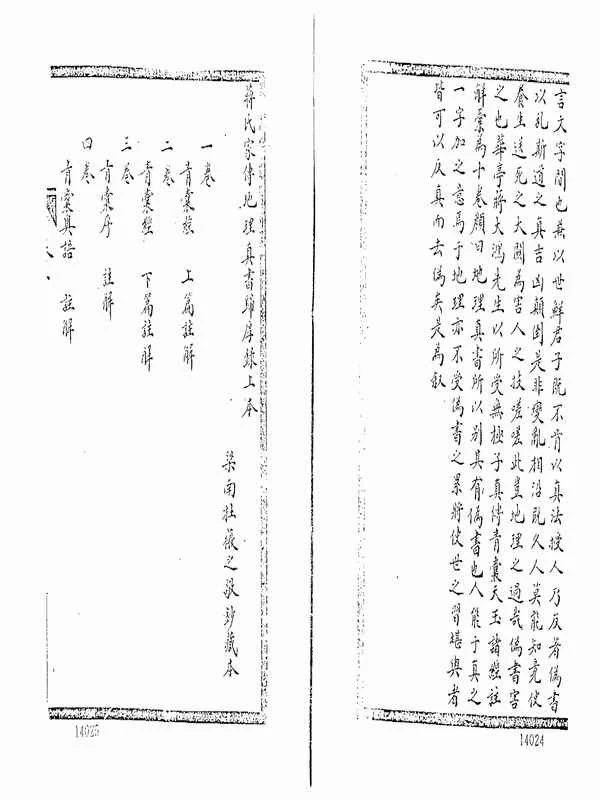 言文字間也無以世鮮君子既不肯以真法授人乃反著偽書
以亂斯道之真吉凶顛倒是非變亂相沿既久人莫能知竟使
養生送死之大關為害人之技嗟嗟此豈地理之過哉偽書害
之也華亭蔣大鴻先生以所受無極子真傳青囊天玉諸經註
解彙為十卷顏曰地理真書所以別其有偽書也人能于真之
一字加之意焉于地理亦不受偽書之累將使世之習堪輿者
皆可以反真而去偽矣是為叙
14024
蔣氏家傳地理真書 上本
梁南杜 之 鈔藏本
一卷
青囊經 上篇註解
二卷
青囊經 下篇註解
三卷
青囊序 註解
四卷
青囊奥語 註解
14025